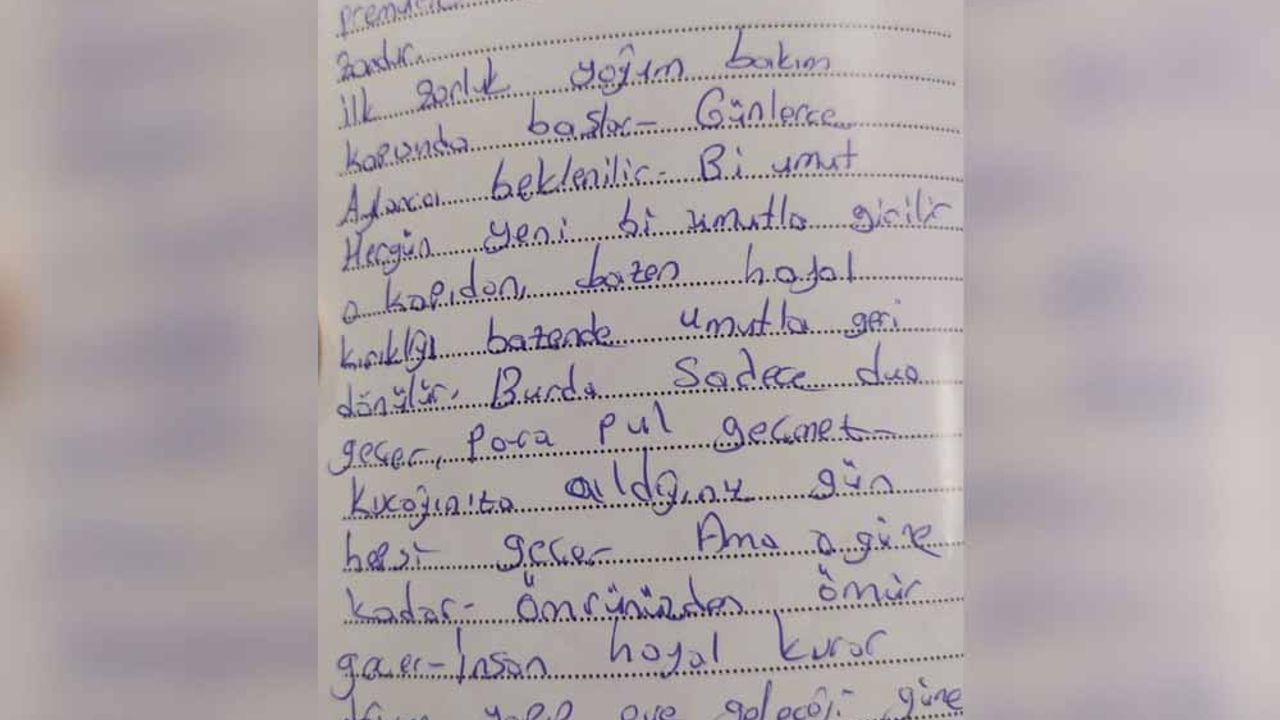 zordur.
ilk zorluk yoğun bakım
kapında başlar- Günlerce
Aylarca beklenilir- Bi umut
Hergün yeni bi umutla girilir
o kapıdan, bazen hayal
kırıklığı bazende umutla geri
dönülür. Burda sadece dua
geçer, para pul geçmez-
kucağınıza aldığınız gün
hepsi geçer Ama o güne
kadar- Ömrünüzden ömür
geçer- İnsan hayal kurar
eve geleceği güne